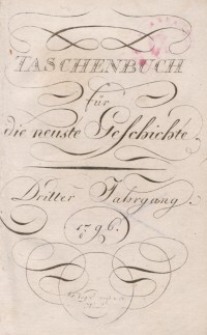 TASCHENBUCH
für
die neuste Geschichte.
Dritter Jahrgang.
1796.